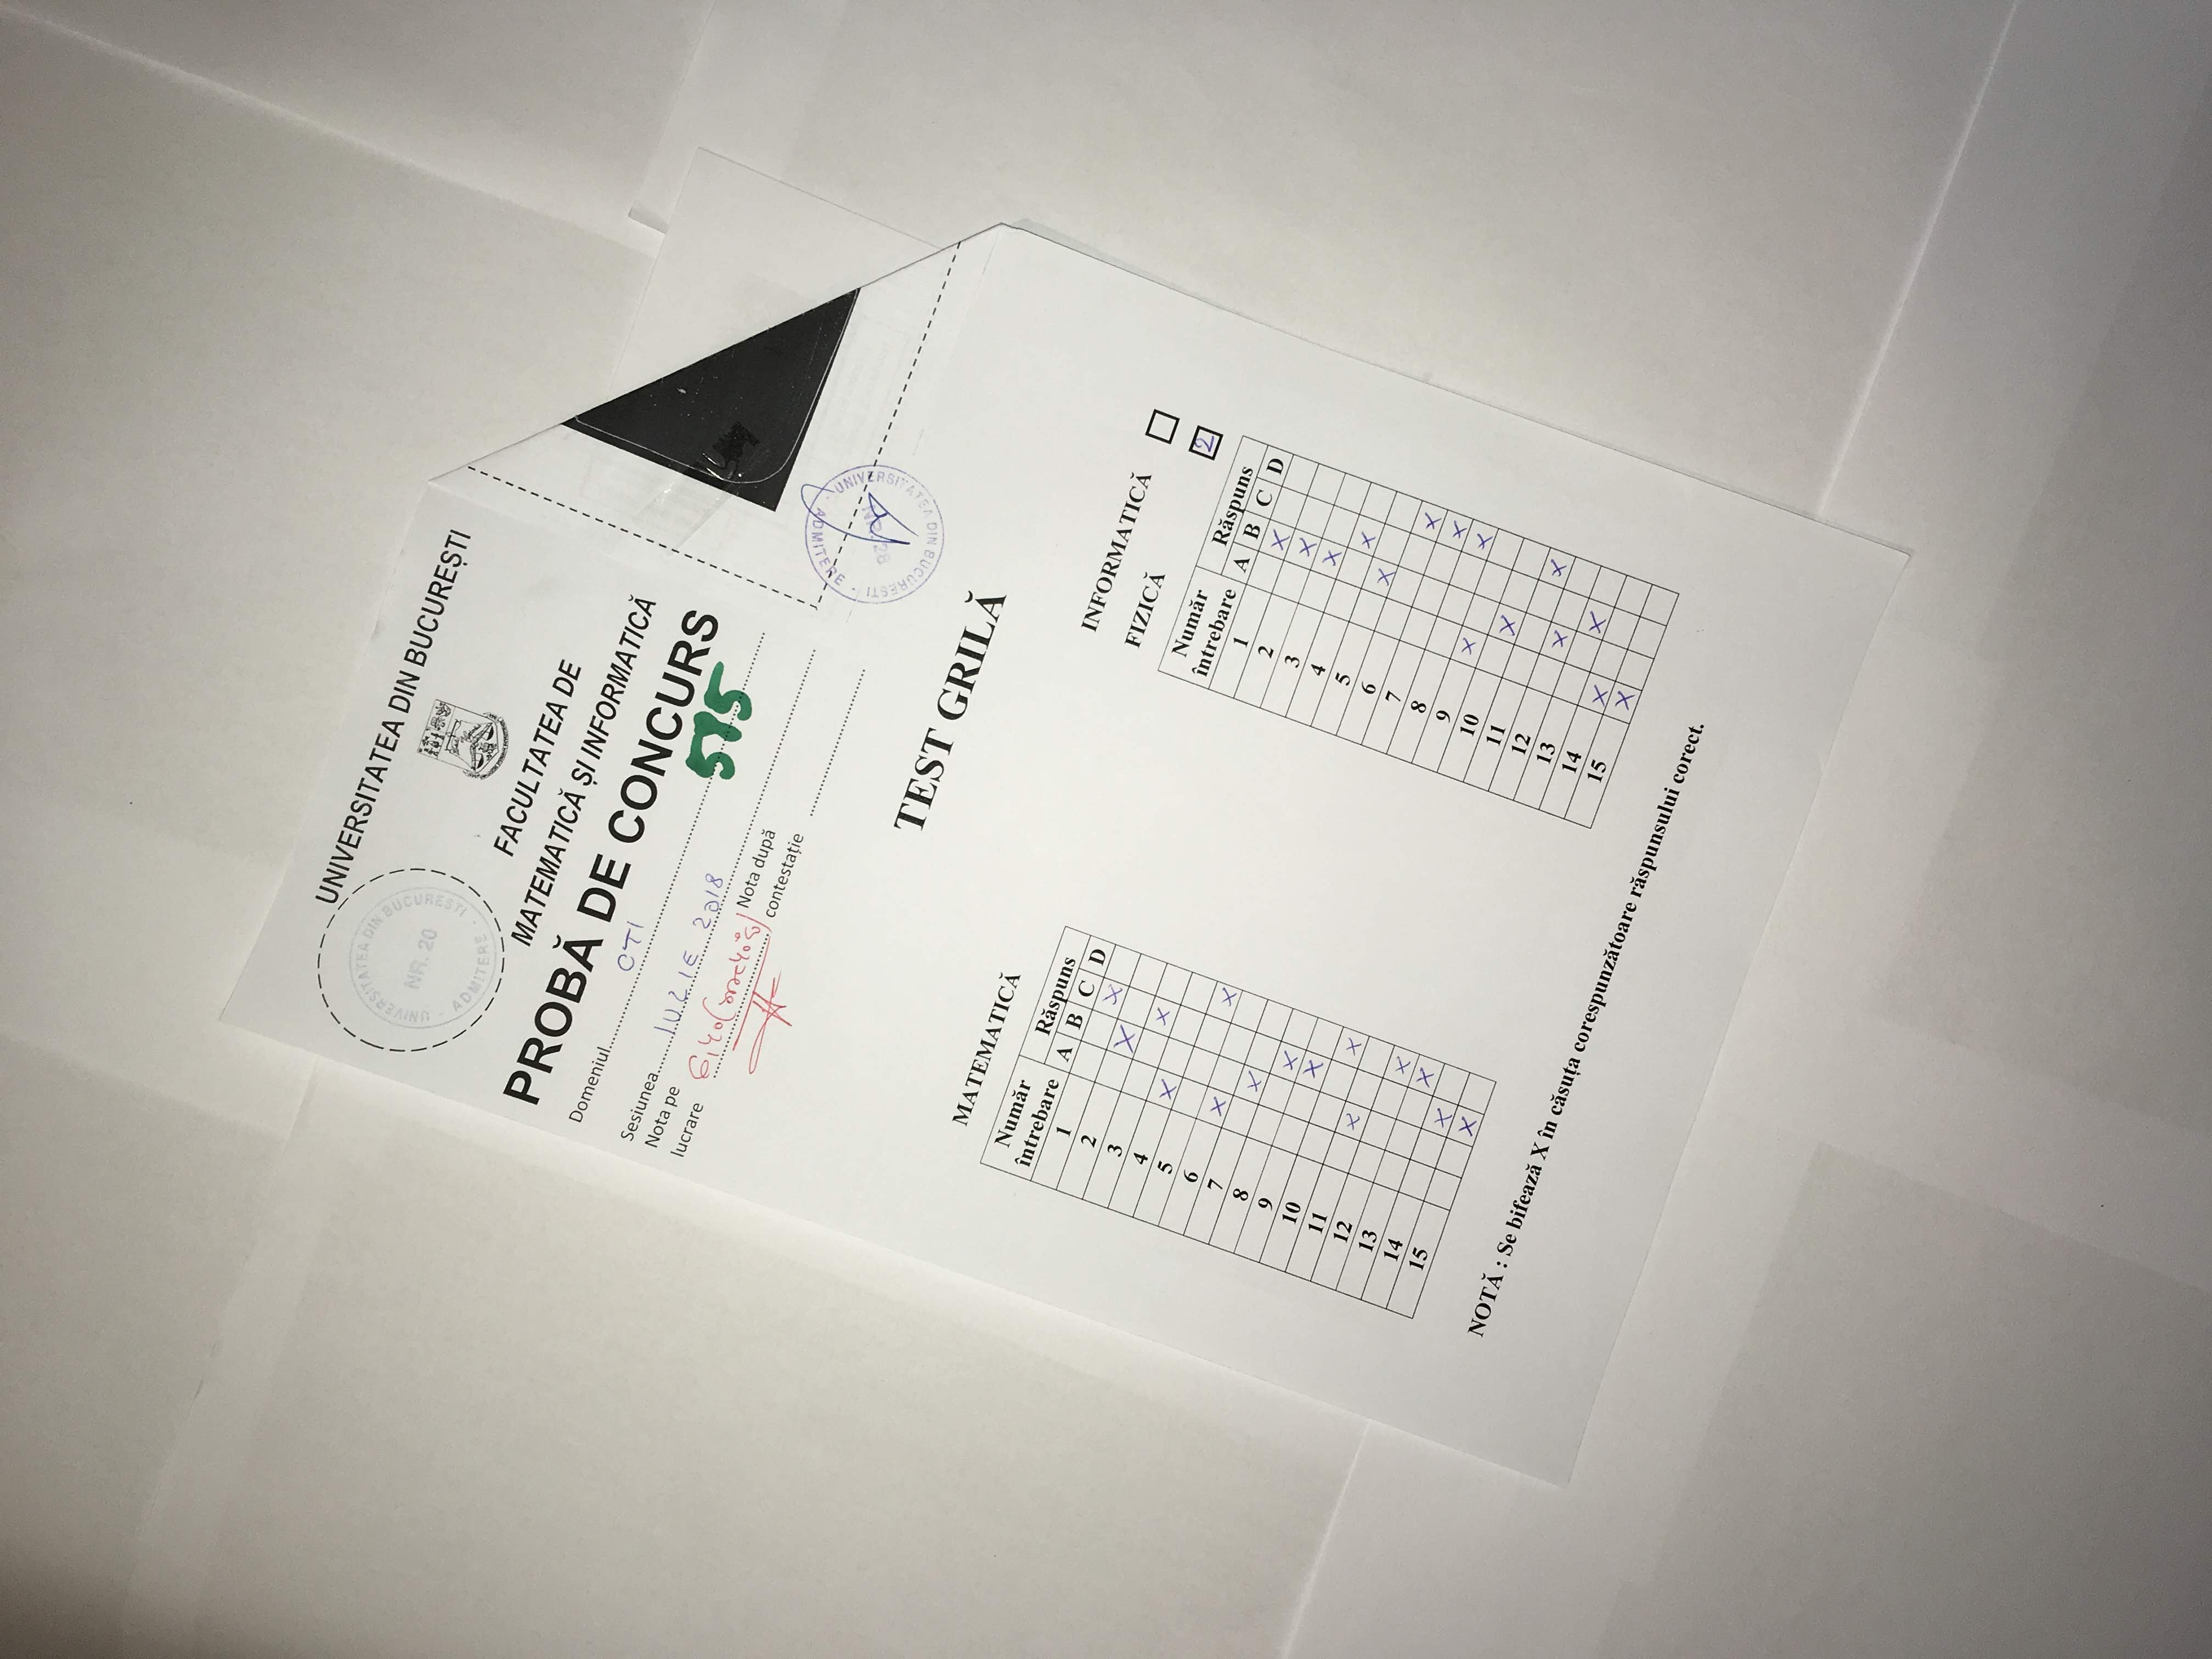 UNIVERSITATEA DIN BUCUREȘTI
· UNIVERSITATEA DIN BUCUREȘTI · ADMITERE
NR. 20
FACULTATEA DE
MATEMATICĂ ȘI INFORMATICĂ
PROBĂ DE CONCURS
Domeniul CTI
595
Sesiunea IULIE 2018
Nota pe
lucrare 6,40
Nota după
contestație
UNIVERSITATEA DIN BUCUREȘTI · ADMITERE ·
NR. 28
TEST GRILĂ
MATEMATICĂ
Număr
întrebare Răspuns
A B C D
1 X
2 X
3 X
4 X
5 X
6 X
7 X
8 X
9 X
10 X
11 X
12 X
13 X
14 X
15 X
INFORMATICĂ
FIZICĂ 2
Număr
întrebare Răspuns
A B C D
1 X
2 X
3 X
4 X
5 X
6 X
7 X
8 X
9 X
10 X
11 X
12 X
13 X
14 X
15 X
NOTĂ : Se bifează X în căsuța corespunzătoare răspunsului corect.